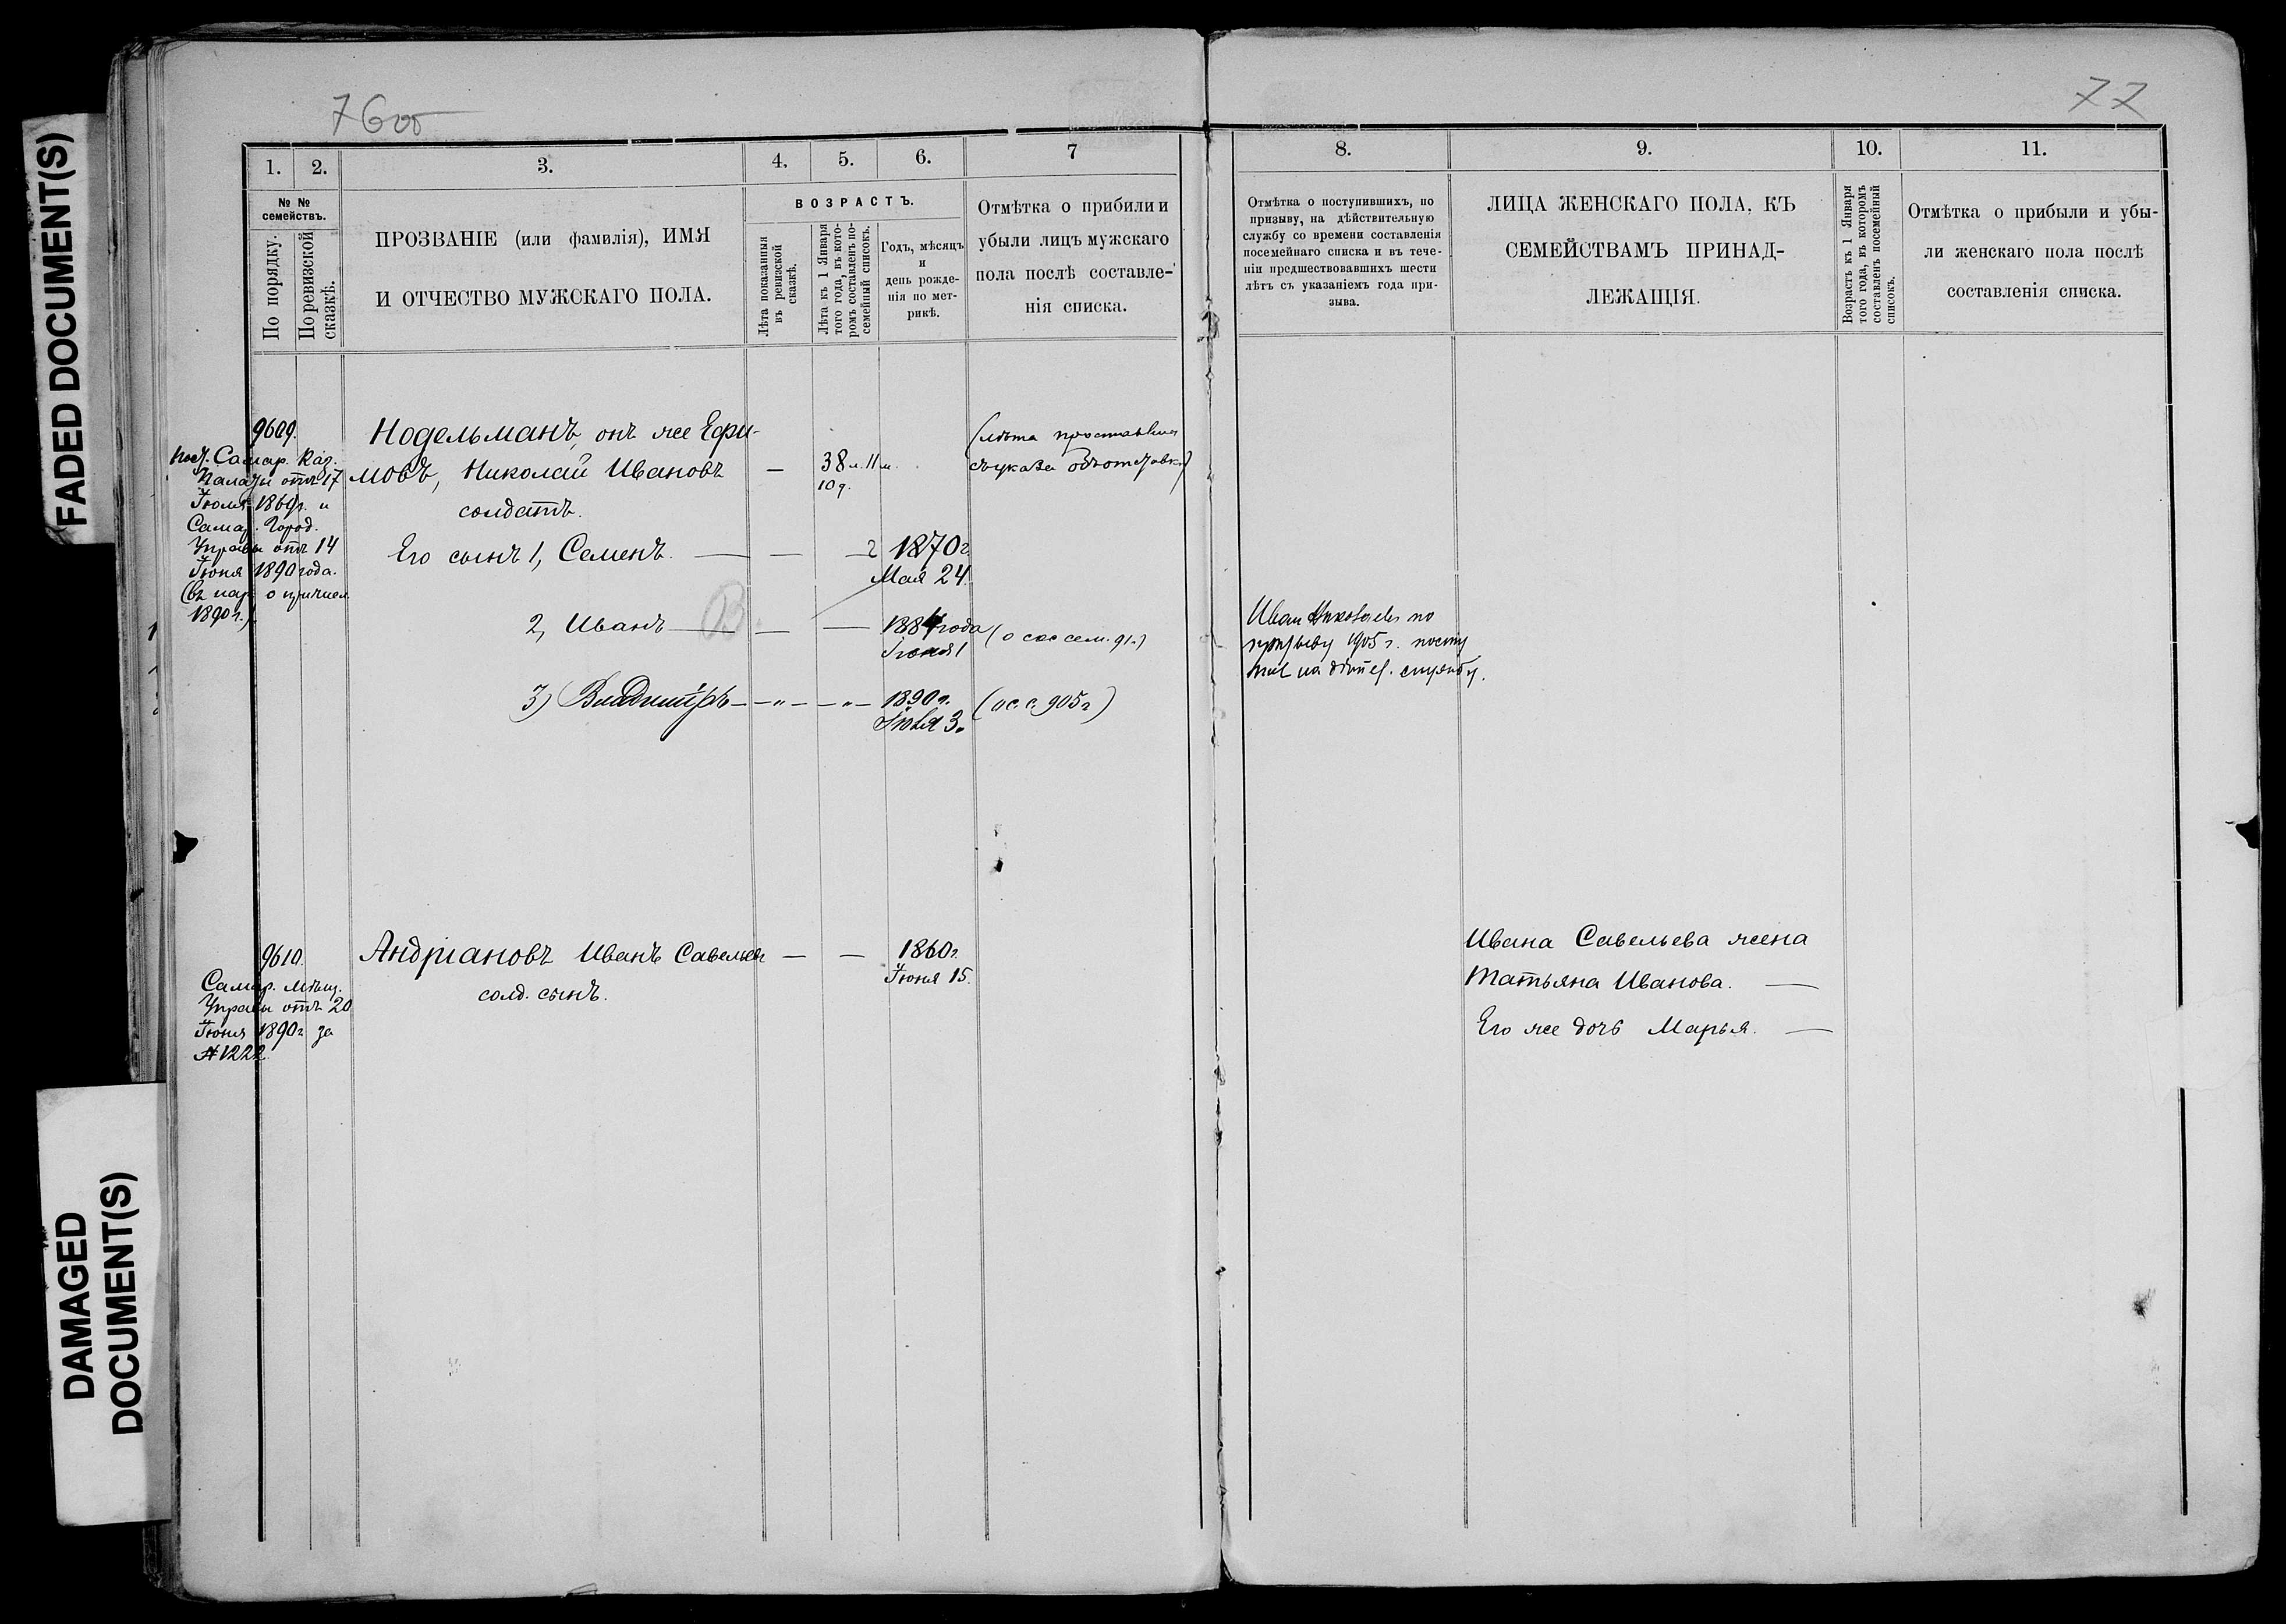 FADED DOCUMENT(S)
DAMAGED
DOCUMENT(S)
76об
1.
2.
3.
4.
5.
6.
7
№ №
семействъ.
По порядку.
По ревизской
сказкѣ.
ПРОЗВАНІЕ (или фамилія), ИМЯ
И ОТЧЕСТВО МУЖСКАГО ПОЛА.
ВОЗРАСТЪ.
Лѣта показанныя
въ ревизской
сказкѣ.
Лѣта къ 1 Января
того года, въ кото-
ромъ составленъ по-
семейный списокъ.
Годъ, мѣсяцъ
и
день рожде-
нія по мет-
рикѣ.
Отмѣтка о прибыли и
убыли лицъ мужскаго
пола послѣ составле-
нія списка.
9609.
Пост. Самар. Каз.
Палаты отъ 17
Іюля 1869г. и
Самар. Город.
Управы отъ 14
Іюня 1890 года.
(въ нар. о причисл.
1890 г.)
Нодельманъ, онъ же Ефи-
мовъ, Николай Ивановъ — 38 л. 11 м.
10 д.
солдатъ.
(лѣта проставлены
съ указа объ отставкѣ)
Его сынъ 1, Семенъ. — — — 1870г.
Мая 24.
2, Иванъ — — — 1884 года
Іюня 1
(о сос сем. 91.)
3) Владиміръ — „ — „ — 1890 г.
Іюля 3.
(о с. с. 905 г)
9610.
Самар. мѣщ.
Управы отъ 20
Іюня 1890г за
№ 1222.
Андріановъ Иванъ Савельевъ — — 1860г.
солд. сынъ.
Іюня 15.
77
8.
9.
10.
11.
Отмѣтка о поступившихъ, по
призыву, на дѣйствительную
службу со времени составленія
посемейнаго списка и въ тече-
ніи предшествовавшихъ шести
лѣтъ съ указаніемъ года при-
зыва.
ЛИЦА ЖЕНСКАГО ПОЛА, КЪ
СЕМЕЙСТВАМЪ ПРИНАД-
ЛЕЖАЩІЯ.
Возрастъ къ 1 Января
того года, въ которомъ
составленъ посемейный
списокъ.
Отмѣтка о прибыли и убы-
ли женскаго пола послѣ
составленія списка.
Иван Николаев по
призыву 1905 г. посту
пил на дѣйст. службу.
Ивана Савельева жена
Татьяна Иванова. —
Его же дочь Марья. —